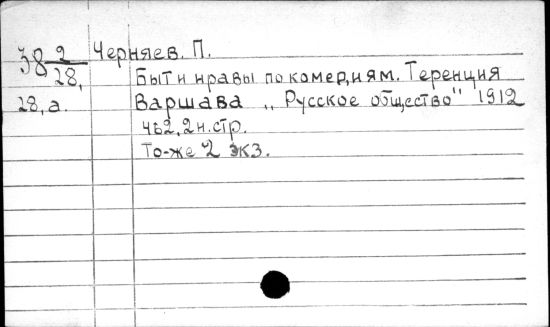 38 2/28, Черняев. П.
Быт и нравы по комедиям. Теренция
28, а. Варшава „Русское общество" 1912
462, 2 н. стр.
То-же 2 экз.